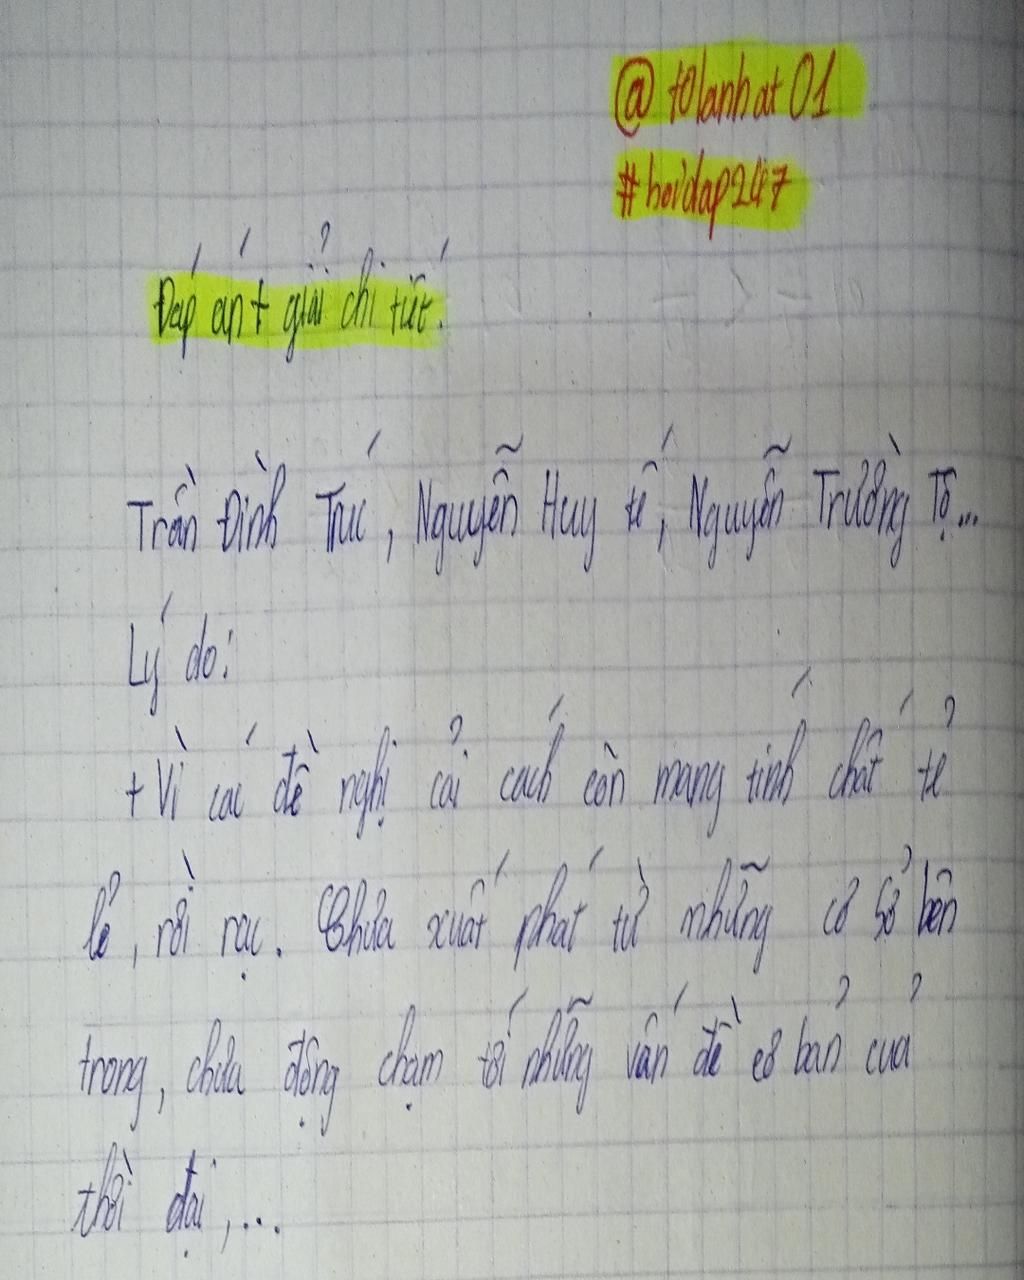 @ tolanhat01
#hoidap247
Đáp án + giải chi tiết.
Trần Đình Túc, Nguyễn Huy tế, Nguyễn Trường Tộ...
Lý do:
+ Vì các đề nghị cải cách còn mang tính chất tẻ
lẻ, rời rạc. Chưa xuất phát từ những cơ sở bên
trong, chưa động chạm tới những vấn đề cơ bản của
thời đại,...